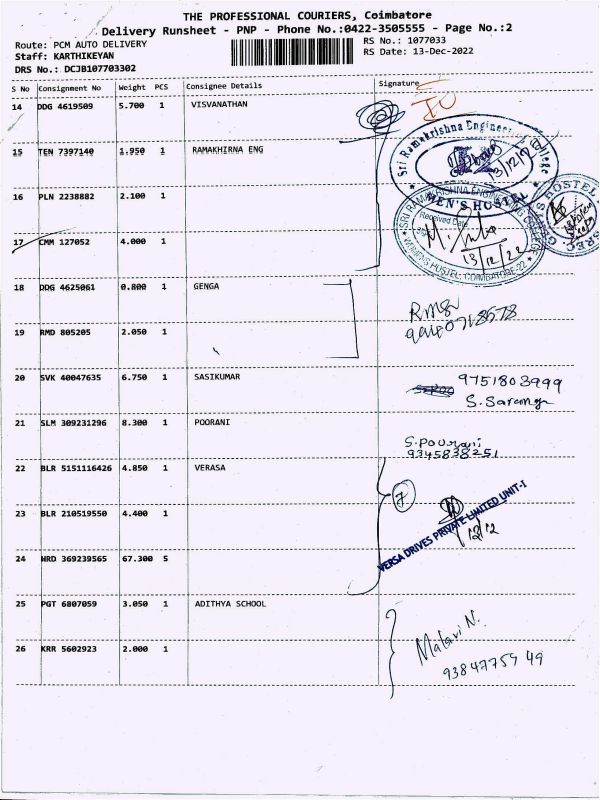 THE PROFESSIONAL COURIERS, Coimbatore
Delivery Runsheet - PNP - Phone No.:0422-3505555 - Page No.:2
Route: PCM AUTO DELIVERY
Staff: KARTHIKEYAN
DRS No.: DCJB107703302
RS No.: 1077033
RS Date: 13-Dec-2022
S No Consignment No Weight PCS Consignee Details Signature
14 DDG 4619509 5.700 1 VISVANATHAN
15 TEN 7397140 1.950 1 RAMAKHIRNA ENG
Sri Ramakrishna Engineering College
13/12/22
MEN'S HOSTEL
16 PLN 2238882 2.100 1
SRI RAMAKRISHNA ENGINEERING COLLEGE
Received Date
13/12/22
WOMENS HOSTEL, COIMBATORE-22
17 CMM 127052 4.000 1
18 DDG 4625061 0.800 1 GENGA
19 RMD 805205 2.050 1
20 SVK 40047635 6.750 1 SASIKUMAR
9751803999
21 SLM 309231296 8.300 1 POORANI
S.Poorani
9345838251
22 BLR 5151116426 4.850 1 VERASA
7
VERSA DRIVES PRIVATE LIMITED UNIT-I
12/12
23 BLR 210519550 4.400 1
24 WRD 369239565 67.300 5
25 PGT 6807059 3.050 1 ADITHYA SCHOOL
Malavi N.
9384775949
26 KRR 5602923 2.000 1